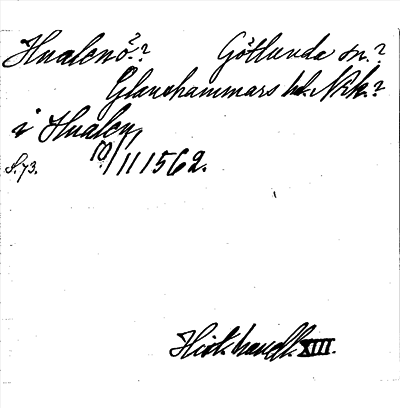 Hvalenö? Götlunda sn.?
Glanshammars hd. Nrk.?
i Hvalen
S. 73. 10/11 1562.
Hist. handl. XIII.